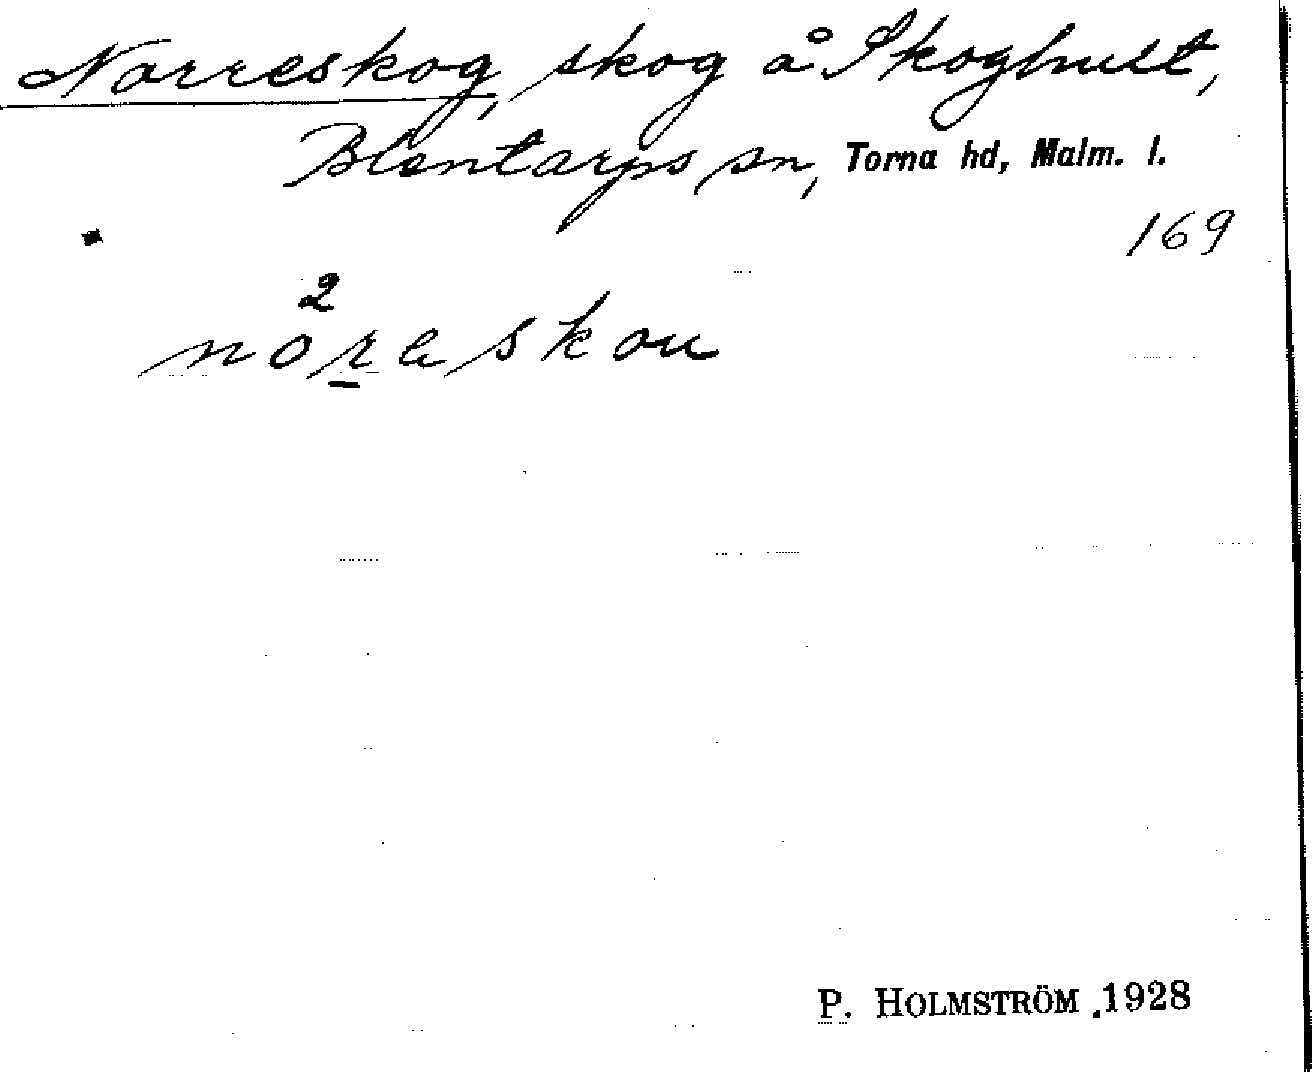 Norreskog, skog å Skoghult,
Blentarps sn, Torna hd, Malm. l.
169
2
nöreskou
P. HOLMSTRÖM .1928